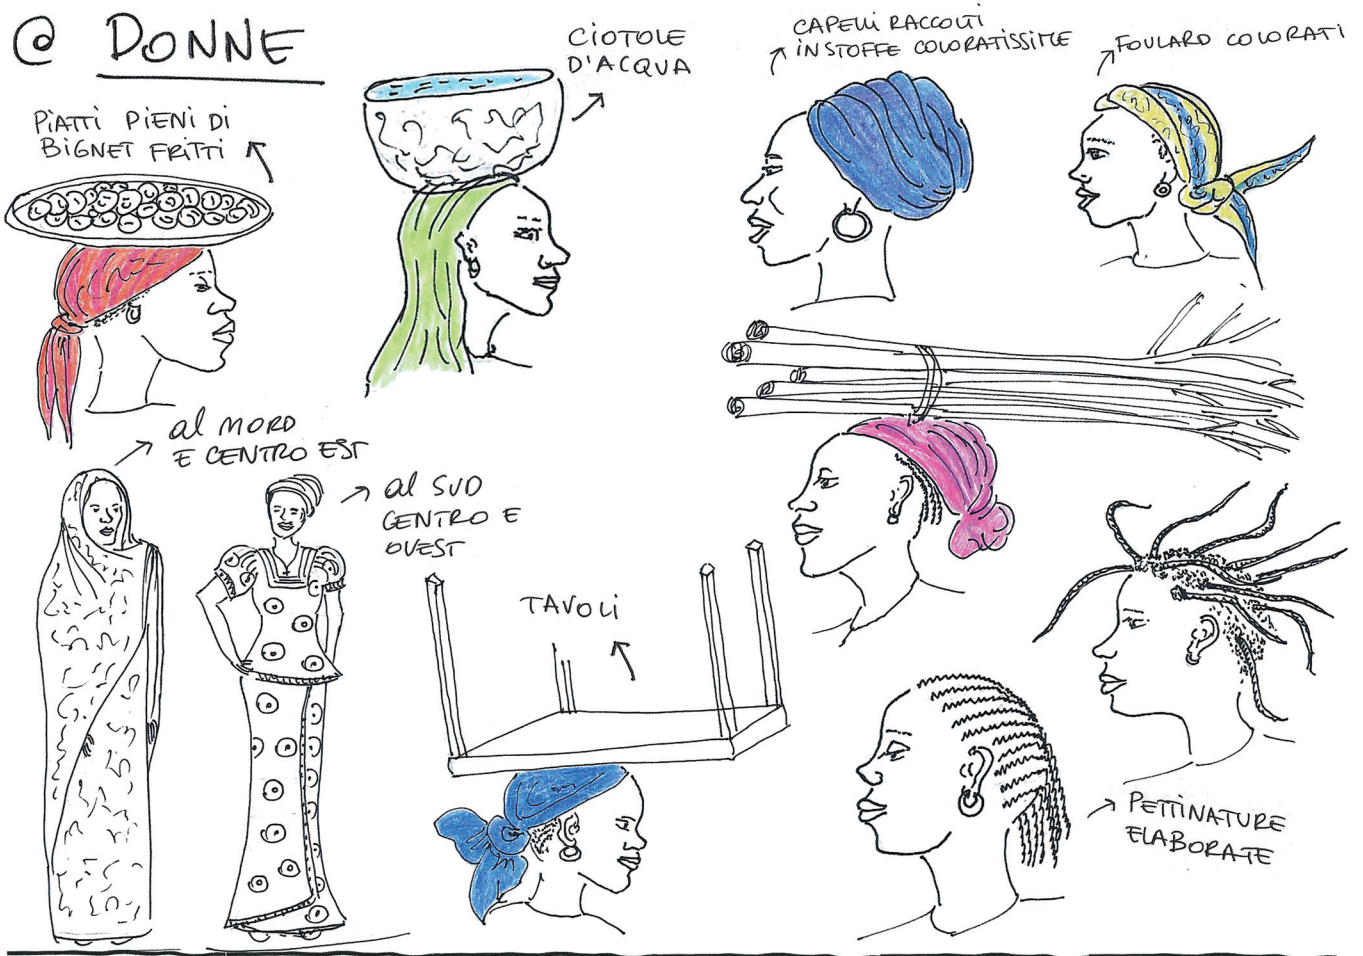 @ DONNE
PIATTI PIENI DI
BIGNET FRITTI
CIOTOLE
D'ACQUA
CAPELLI RACCOLTI
IN STOFFE COLORATISSIME
FOULARD COLORATI
al NORD
E CENTRO EST
al SUD
CENTRO E
OVEST
TAVOLI
PETTINATURE
ELABORATE